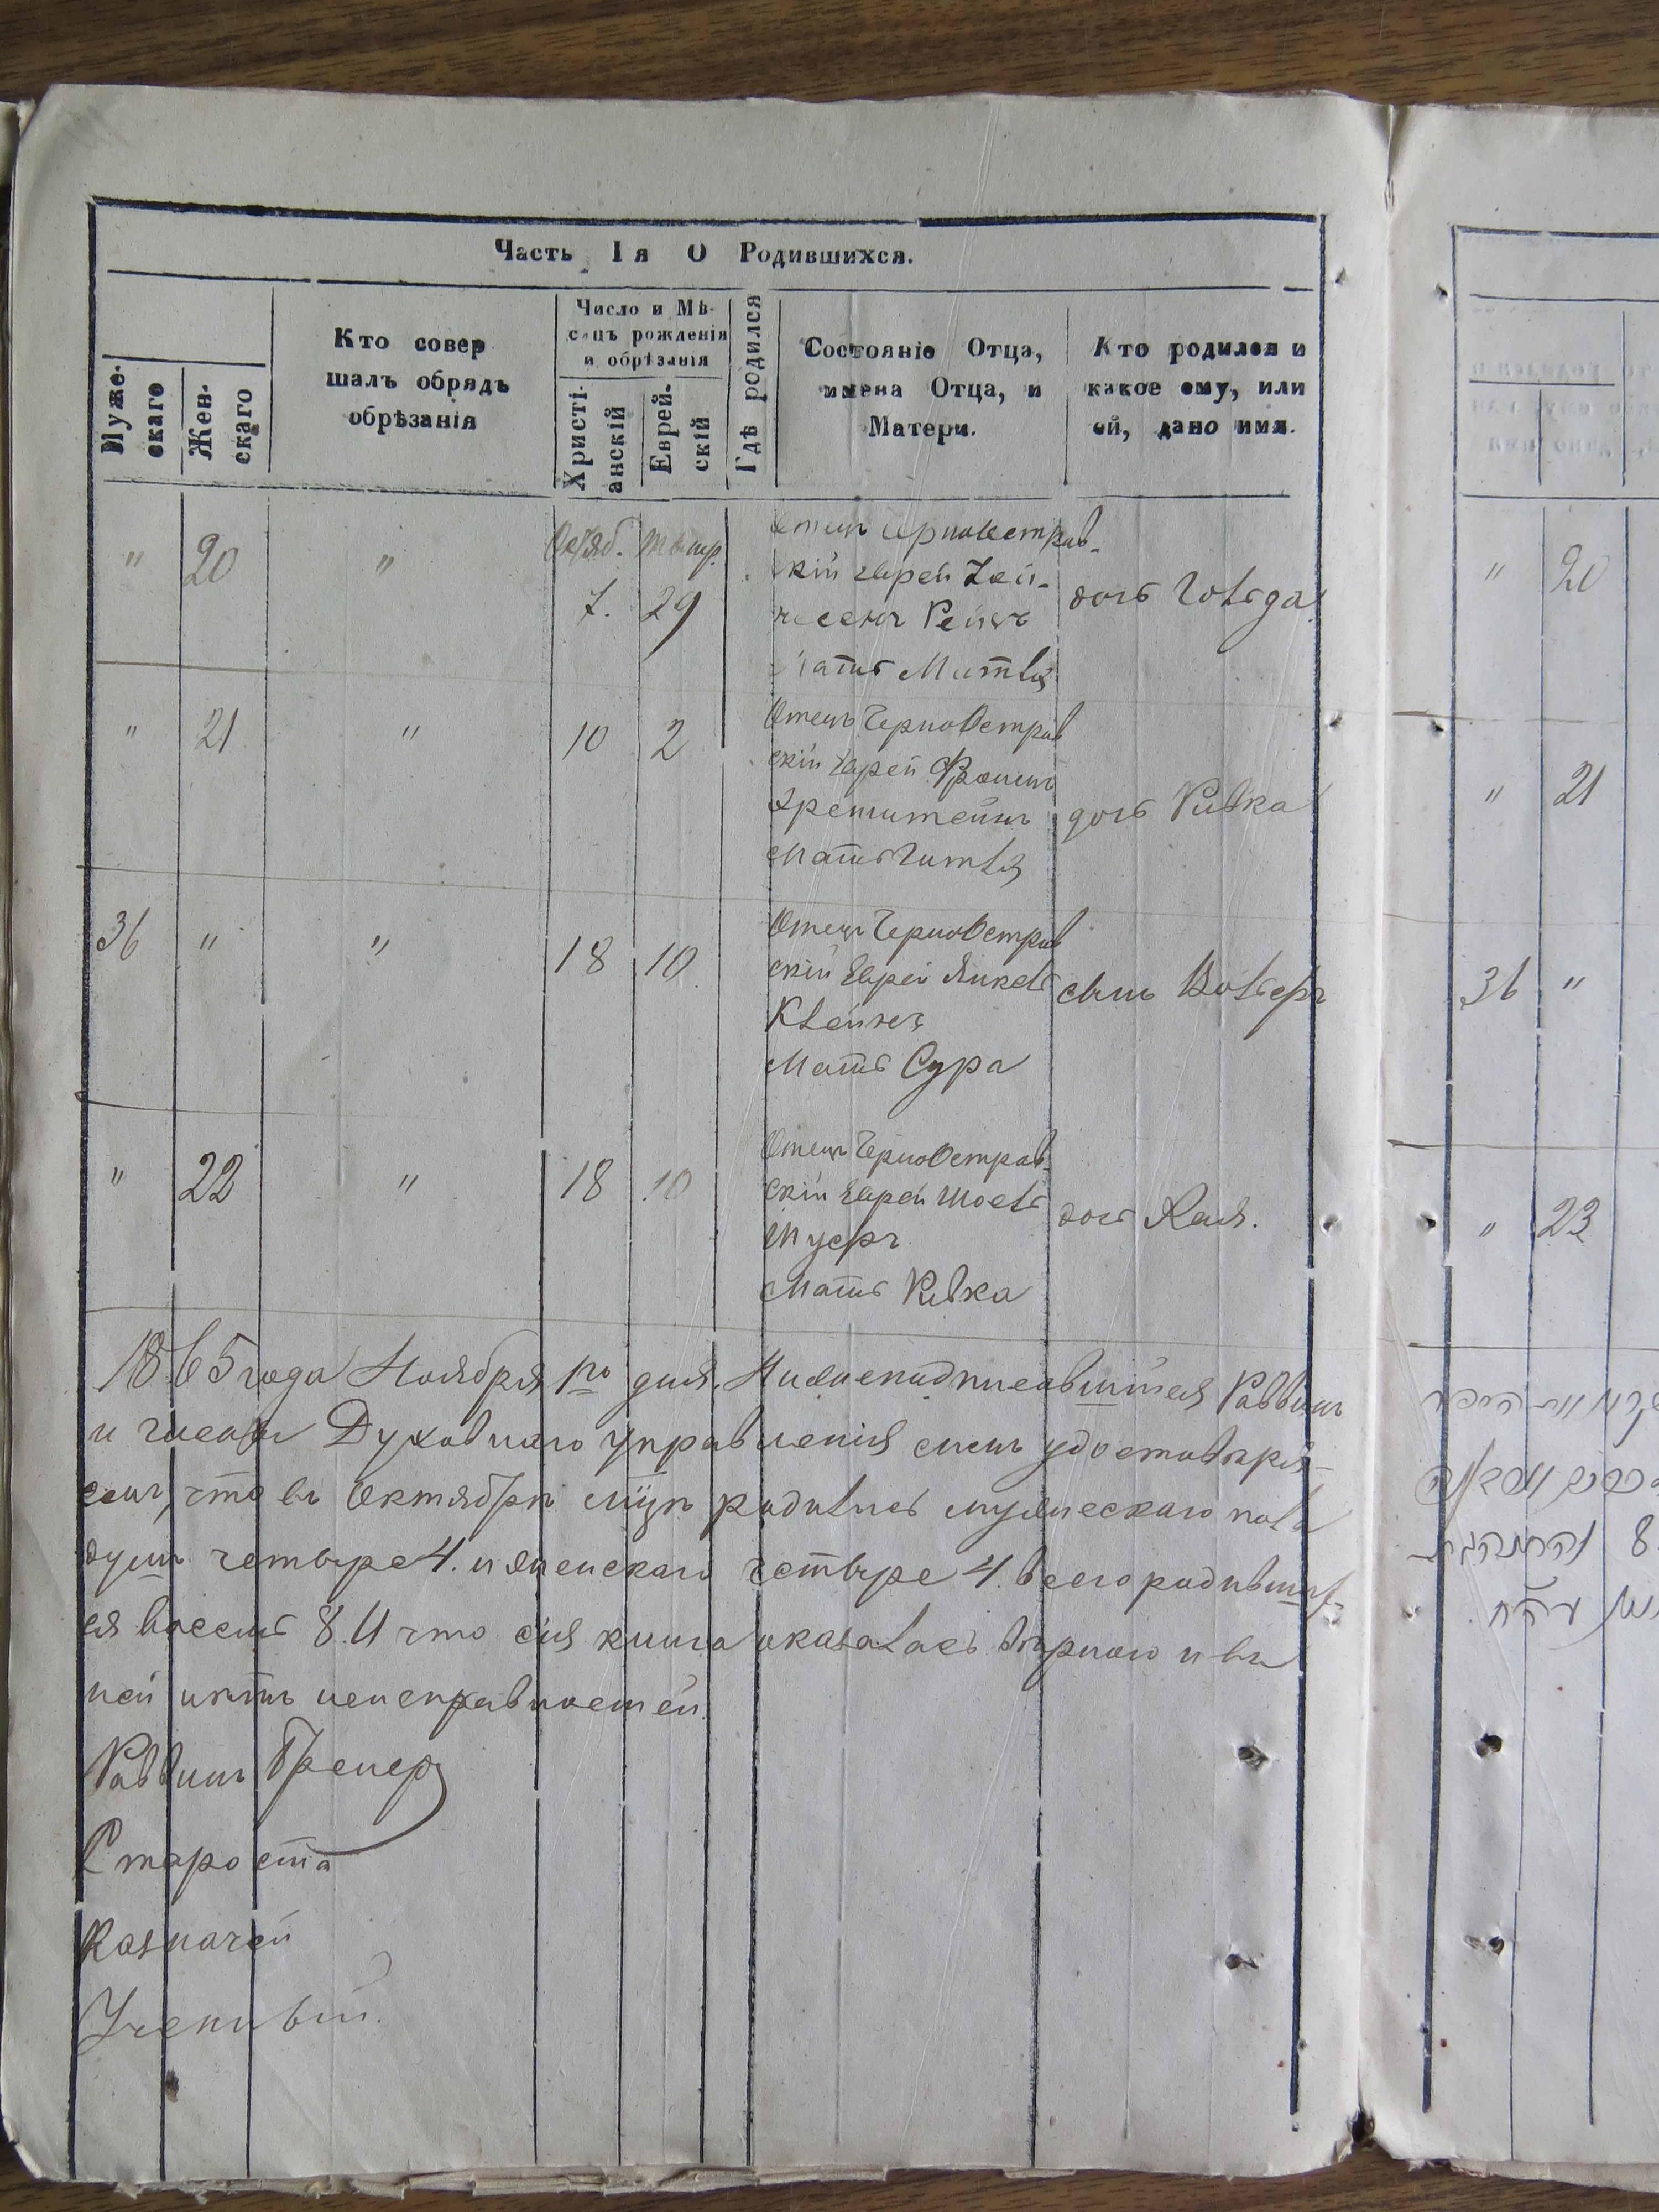 Часть Iя О Родившихся.
Мужескаго
Женскаго
Кто совер
шалъ обрядъ
обрѣзанія
Число и Мѣ-
сяцъ рожденія
и обрѣзанія
Христі-
анскій
Еврей-
скій
Гдѣ родился
Состояніе Отца,
имена Отца, и
Матери.
Кто родился и
какое ему, или
ей, дано имя.
" 20 " Октяб. 7. 29
Отецъ Черноостров-
скій Еврей
Мать
дочь Гольда
" 21 " 10 2
Отецъ Черноостров
скій Еврей
Мать Гитля
дочь Ривка
36 " " 18 10
Отецъ Черноостров
скій Еврей Янкель
Мать Сура
сынъ Вольфъ
" 22 " 18 10
Отецъ Черноостров-
скій Еврей
Мать Ривка
дочь Хая.
1865 года Ноября 1го дня. Нижеподписавшійся Раввинъ
и члены Духовнаго управленія симъ удостовѣря-
емъ, что въ Октябрѣ мцѣ родились мужескаго пола
душъ четыре 4. и женскаго четыре 4. всего родивших-
ся восемь 8. И что сія книга оказалась вѣрною и въ
ней нѣтъ неисправностей.
Раввинъ
Староста
Казначей
Ученый.
" 20
" 21
36 "
" 23